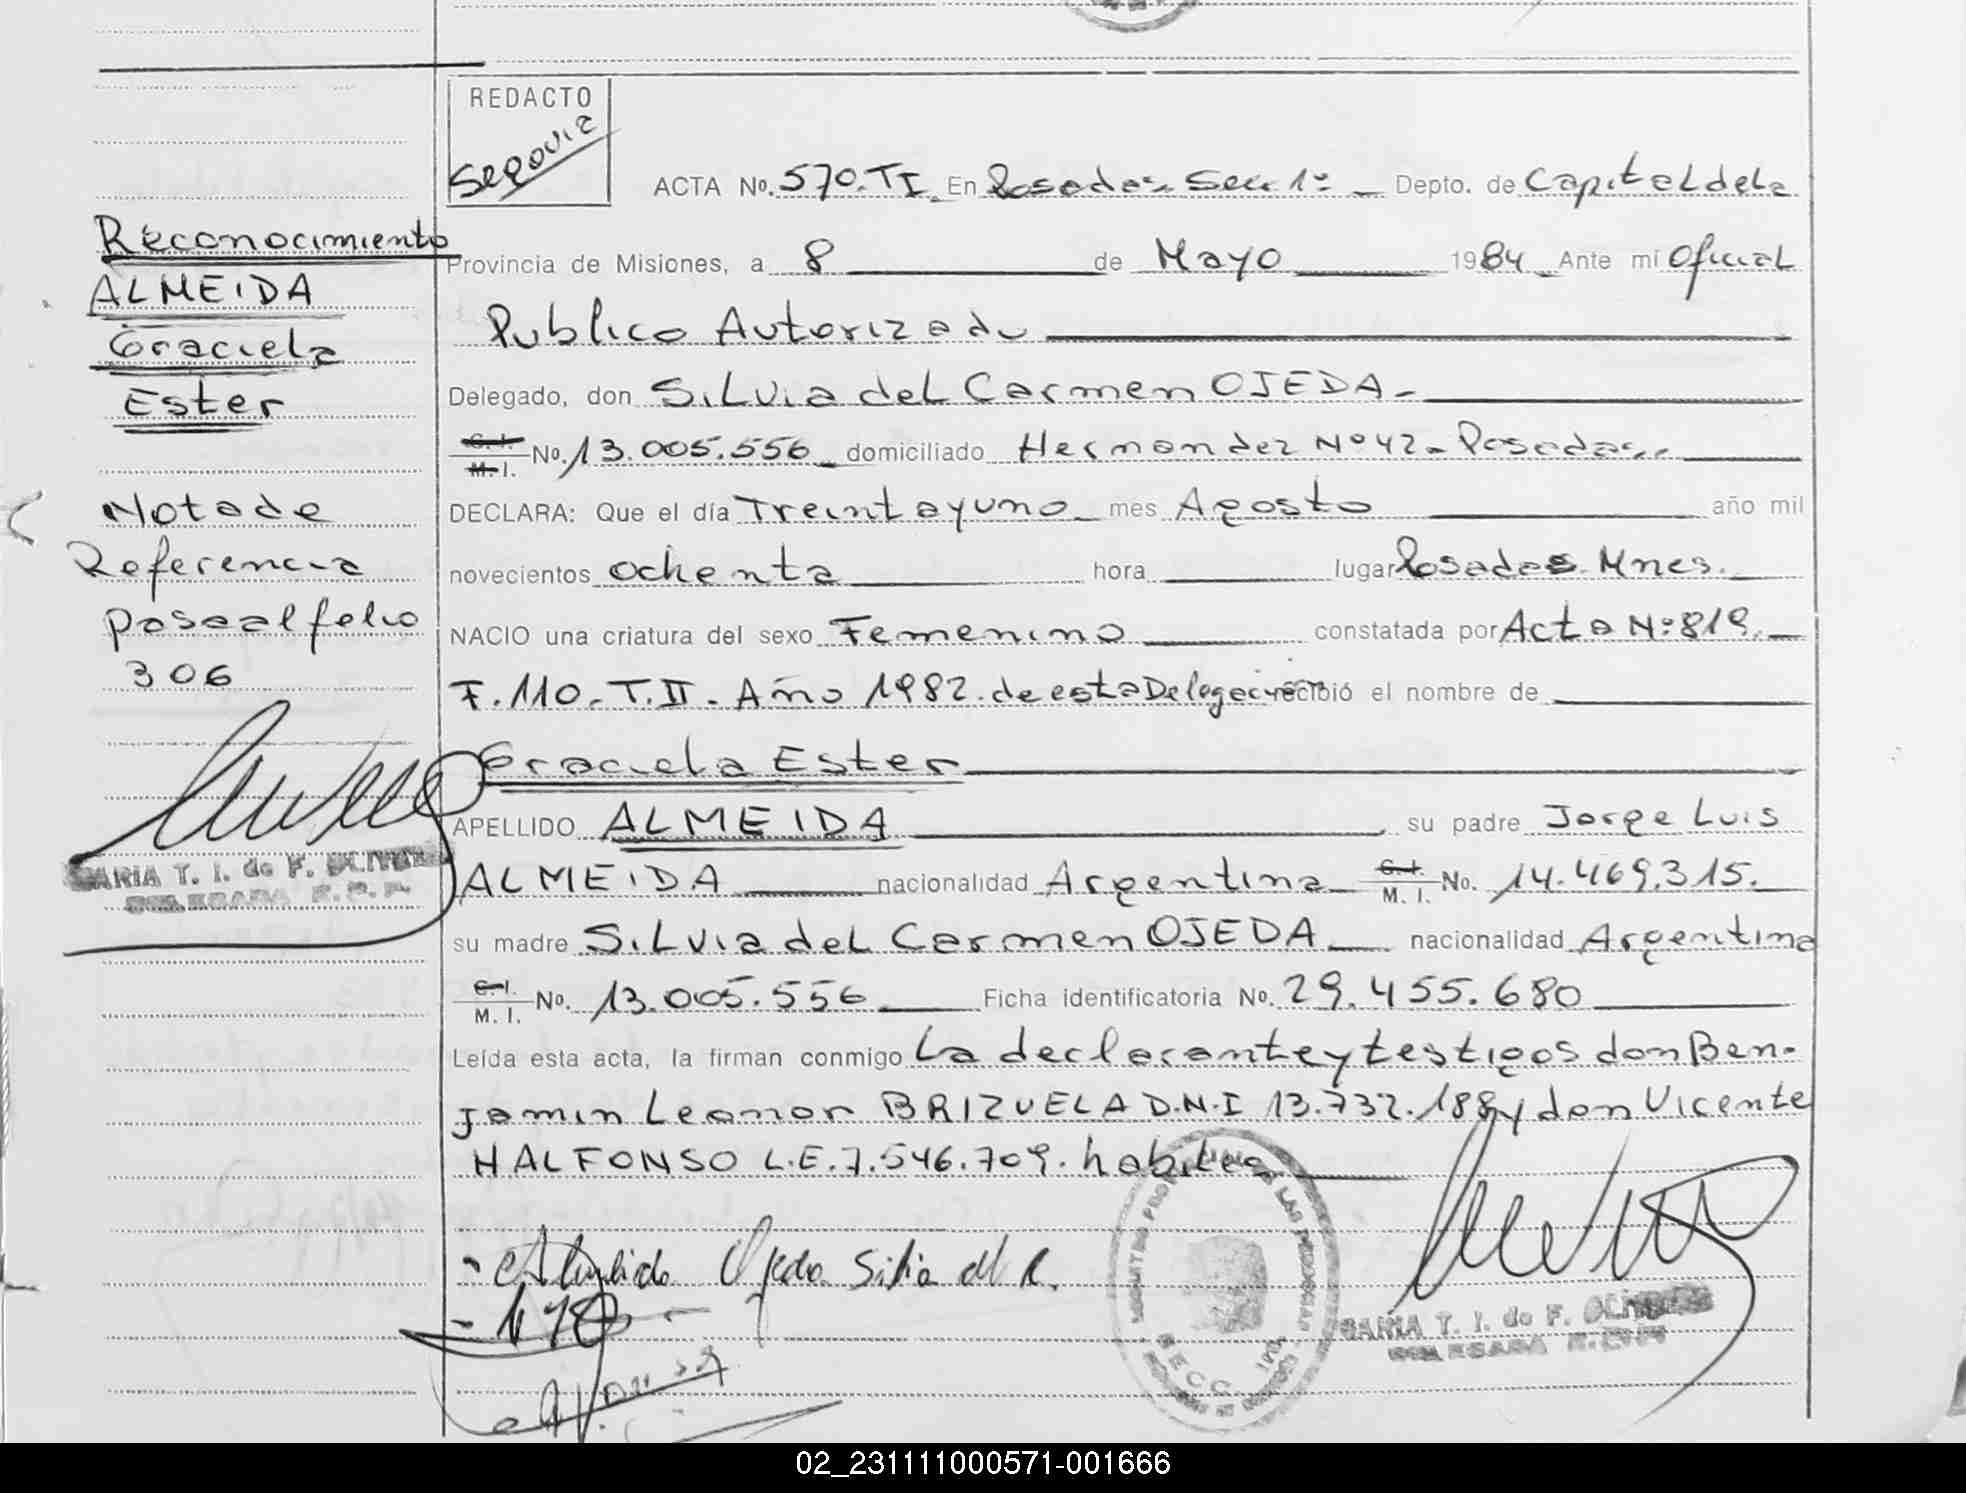 REDACTO
Segovia
ACTA No. 570. T I. En Posadas Secc 1º Depto. de Capital de la
Reconocimiento
Provincia de Misiones, a 8 de Mayo 1984 Ante mí Oficial
ALMEIDA
Publico Autorizado
Graciela
Delegado, don Silvia del Carmen OJEDA.-
Ester
C. I. M. I. No. 13.005.556 domiciliado Hernandez Nº 42 - Posadas.-
Nota de
DECLARA: Que el día Treinta y uno mes Agosto año mil
Referencia
novecientos ochenta hora lugar Posadas Mnes.
pasa al folio
NACIO una criatura del sexo Femenino constatada por Acta Nº 819.
306
F. 110. T. II. Año 1982. de esta Delegacion recibió el nombre de
Graciela Ester
APELLIDO ALMEIDA su padre Jorge Luis
MARIA T. I. de F.
ALMEIDA nacionalidad Argentina C. I. M. I. No. 14.469.315.
su madre Silvia del Carmen OJEDA nacionalidad Argentina
C. I. M. I. No. 13.005.556 Ficha identificatoria No. 29.455.680
Leída esta acta, la firman conmigo La declarante y testigos don Ben-
jamin Leonor BRIZUELA D.N.I 13.732.188 y don Vicente
HALFONSO L.E. 7.546.709. habiles
Ojeda Silvia del C.
SECC
MARIA T. I. de F.
02_231111000571-001666